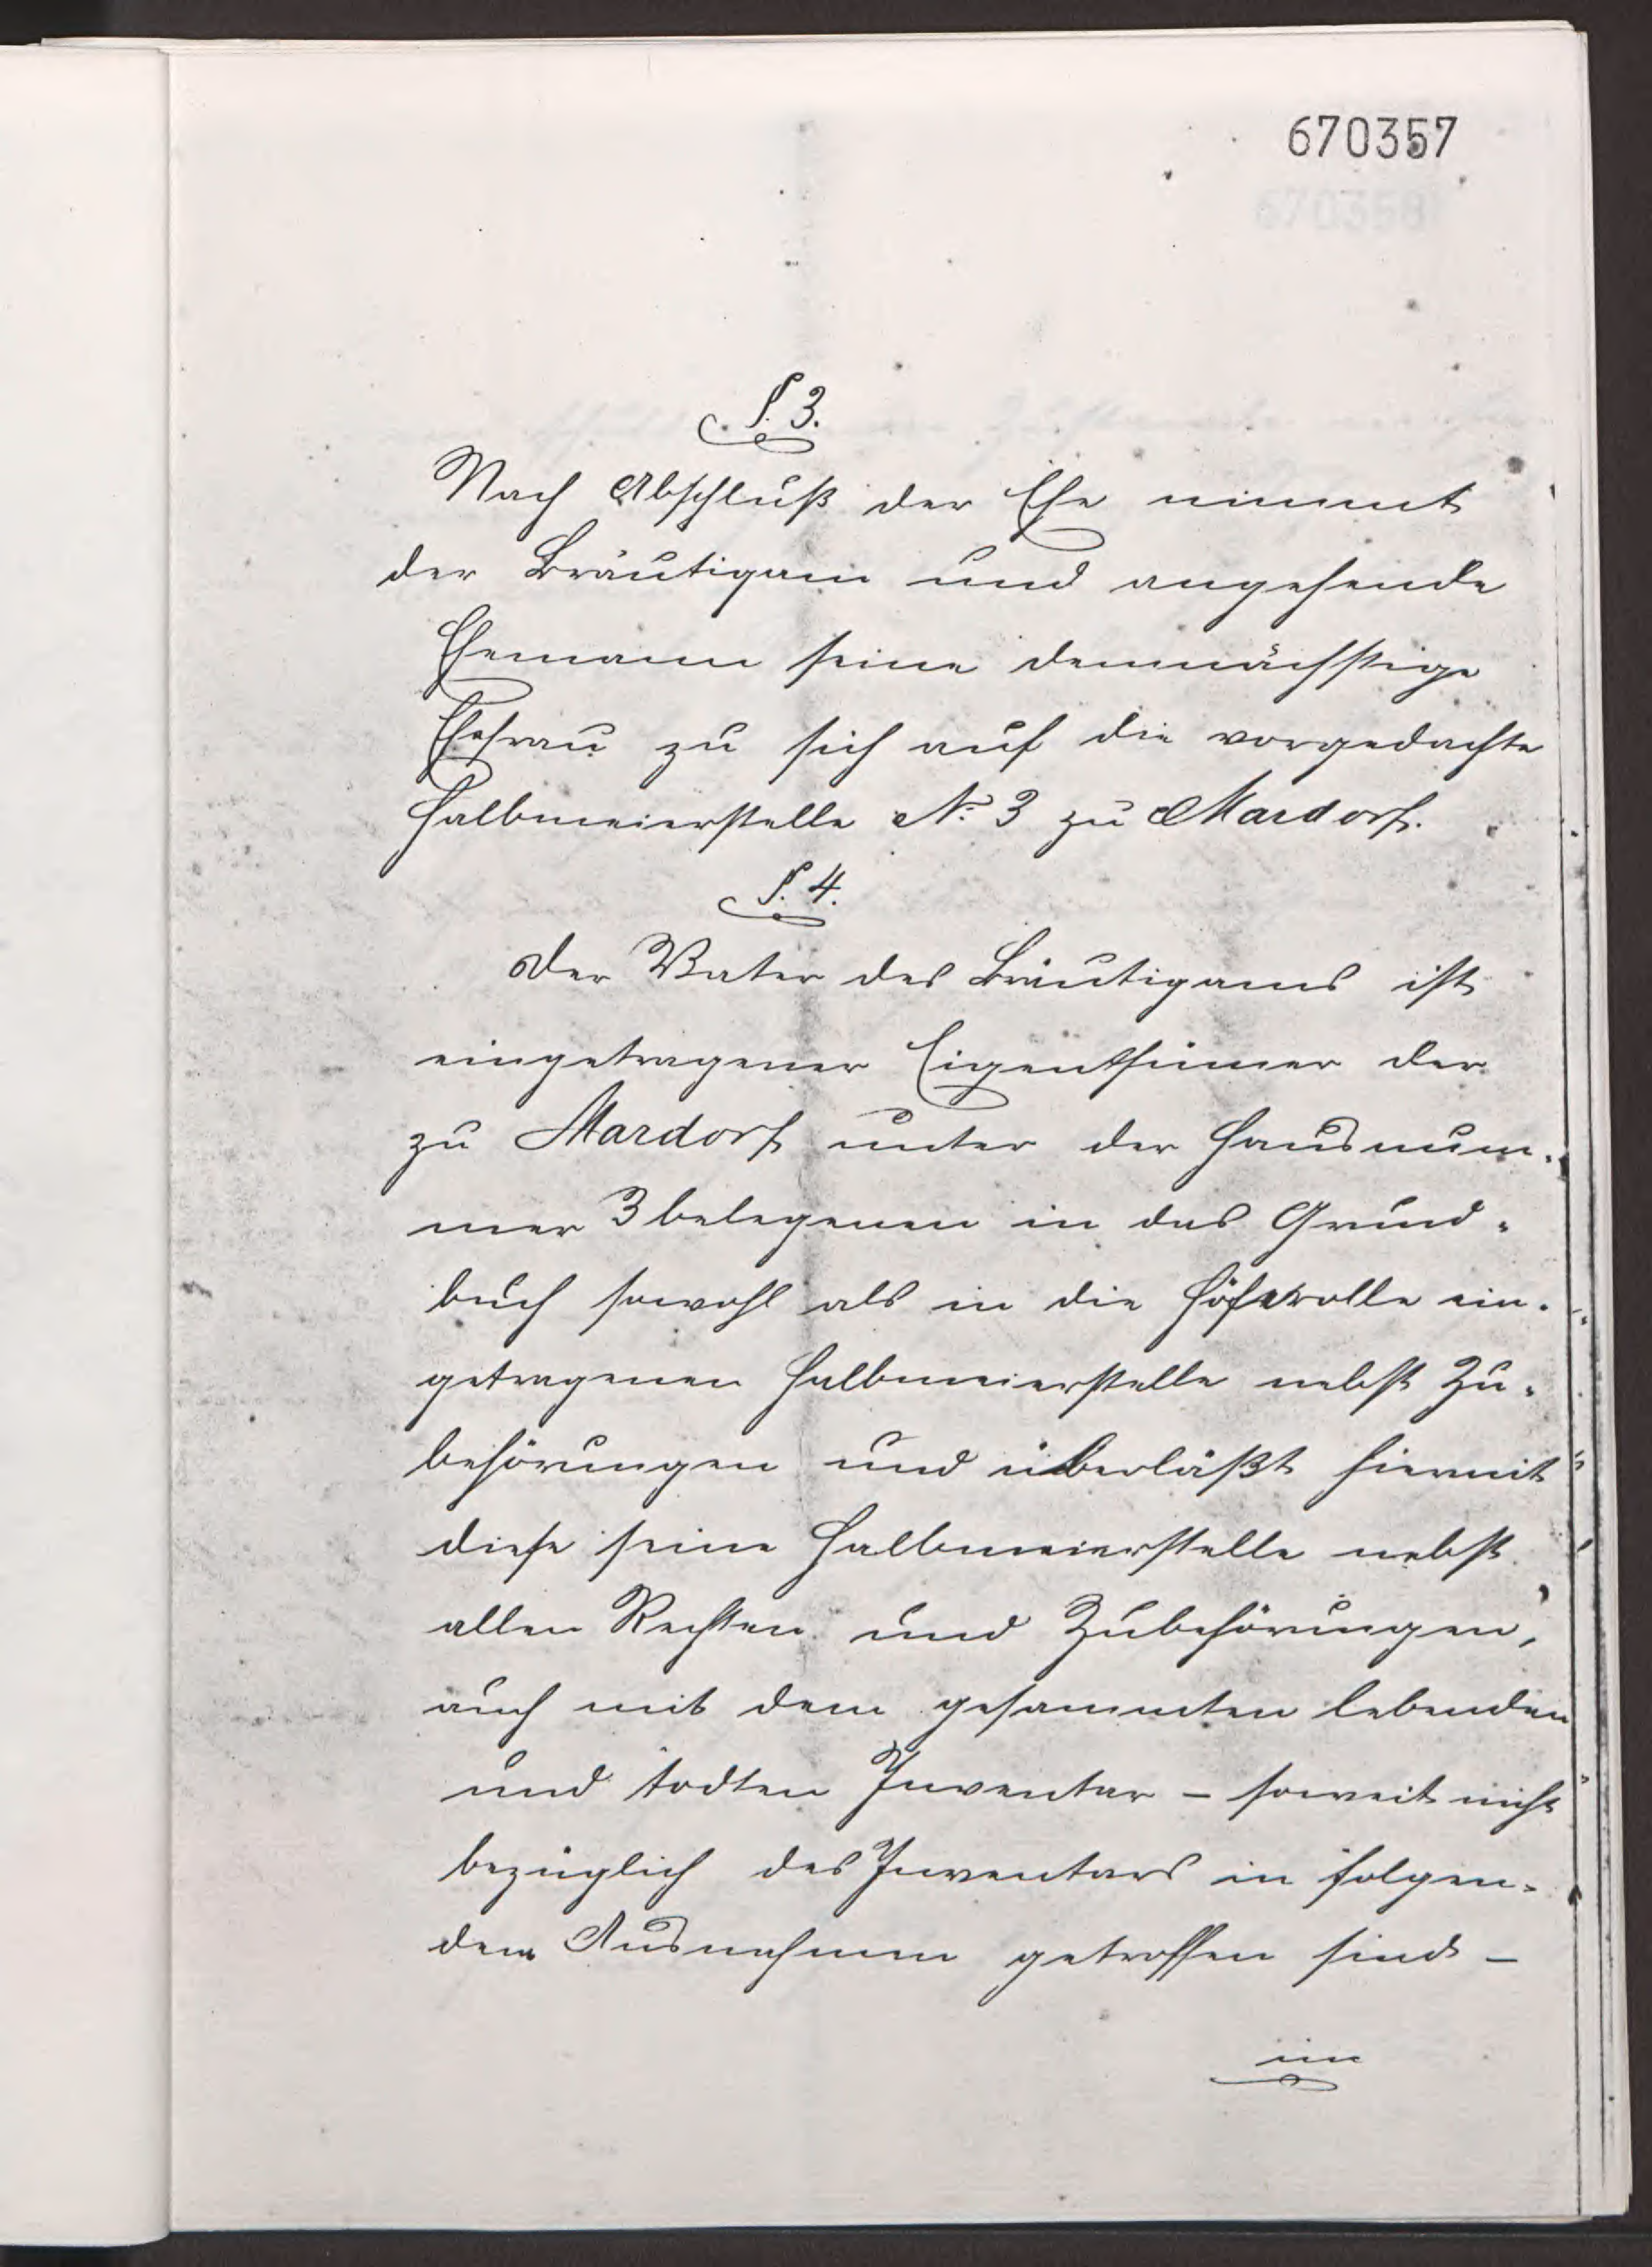 670357
§. 3.
Nach Abschluß der Ehe nimmt
der Bräutigam und angehende
Ehemann seine demnächstige
Ehefrau zu sich auf die vorgedachte
Halbmeierstelle No. 3 zu Mardorf.
§. 4.
Der Vater des Bräutigams ist
eingetragener Eigenthümer der
zu Mardorf unter der Hausnum-
mer 3 belegenen in das Grund-
buch sowohl als in die Höferolle ein-
getragenen Halbmeierstelle nebst Zu-
behörungen und überläßt hiermit
diese seine Halbmeierstelle nebst
allen Rechten und Zubehörungen,
auch mit dem gesammten lebenden
und todten Inventar – soweit nicht
bezüglich des Inventars in folgen-
dem Ausnahmen getroffen sind –
im